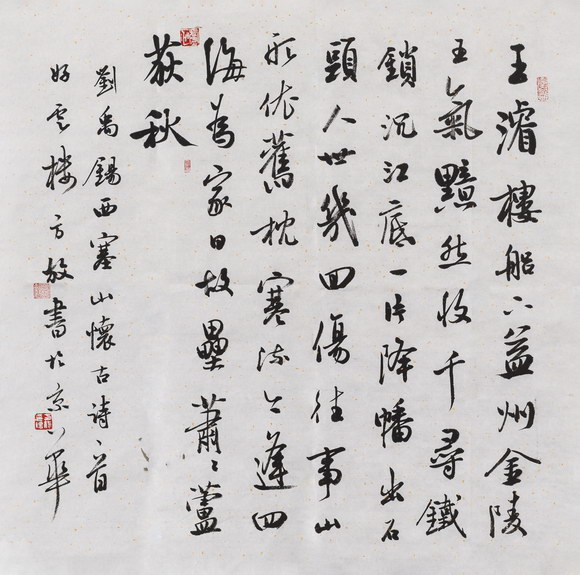 王濬樓船下益州金陵
王氣黯然收千尋鐵
鎖沉江底一片降幡出石
頭人世幾回傷往事山
形依舊枕寒流今逢四
海為家日故壘蕭々蘆
荻秋
劉禹錫西塞山懷古詩一首
好雲樓方放書於京華